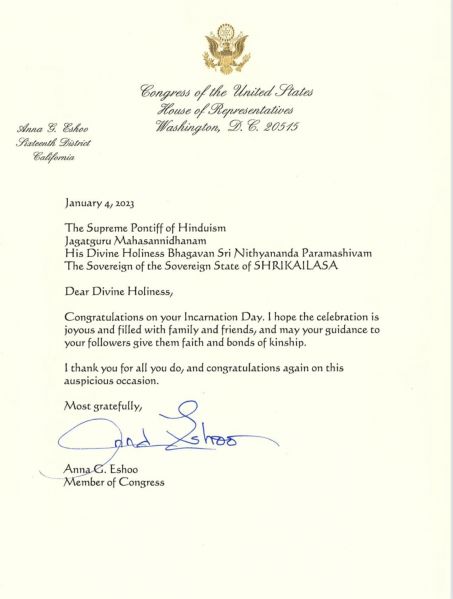 Congress of the United States
House of Representatives
Washington, D. C. 20515
Anna G. Eshoo
Sixteenth District
California
January 4, 2023
The Supreme Pontiff of Hinduism
Jagatguru Mahasannidhanam
His Divine Holiness Bhagavan Sri Nithyananda Paramashivam
The Sovereign of the Sovereign State of SHRIKAILASA
Dear Divine Holiness,
Congratulations on your Incarnation Day. I hope the celebration is
joyous and filled with family and friends, and may your guidance to
your followers give them faith and bonds of kinship.
I thank you for all you do, and congratulations again on this
auspicious occasion.
Most gratefully,
Anna Eshoo
Anna G. Eshoo
Member of Congress